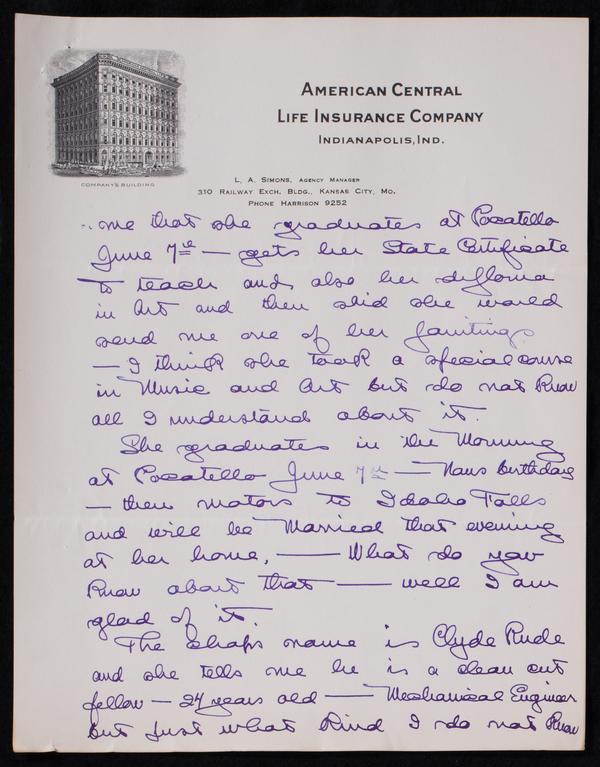 AMERICAN CENTRAL
LIFE INSURANCE COMPANY
INDIANAPOLIS, IND.
COMPANY'S BUILDING
L. A. SIMONS, AGENCY MANAGER
310 RAILWAY EXCH. BLDG., KANSAS CITY, MO.
PHONE HARRISON 9252
me that she graduates at Pocatello
June 7th — gets her State Certificate
to teach and also her diploma
in Art and then said she would
send me one of her paintings
— I think she took a special course
in Music and Art but do not Know
all I understand about it.
She graduates in the Morning
at Pocatello June 7th — Nans birthday
— then motors to Idaho Falls
and will be Married that evening
at her home, — What do you
Know about that — well I am
glad of it.
The chaps name is Clyde Rude
and she tells me he is a clean cut
fellow — 24 years old — Mechanical Engineer
but just what Kind I do not Know